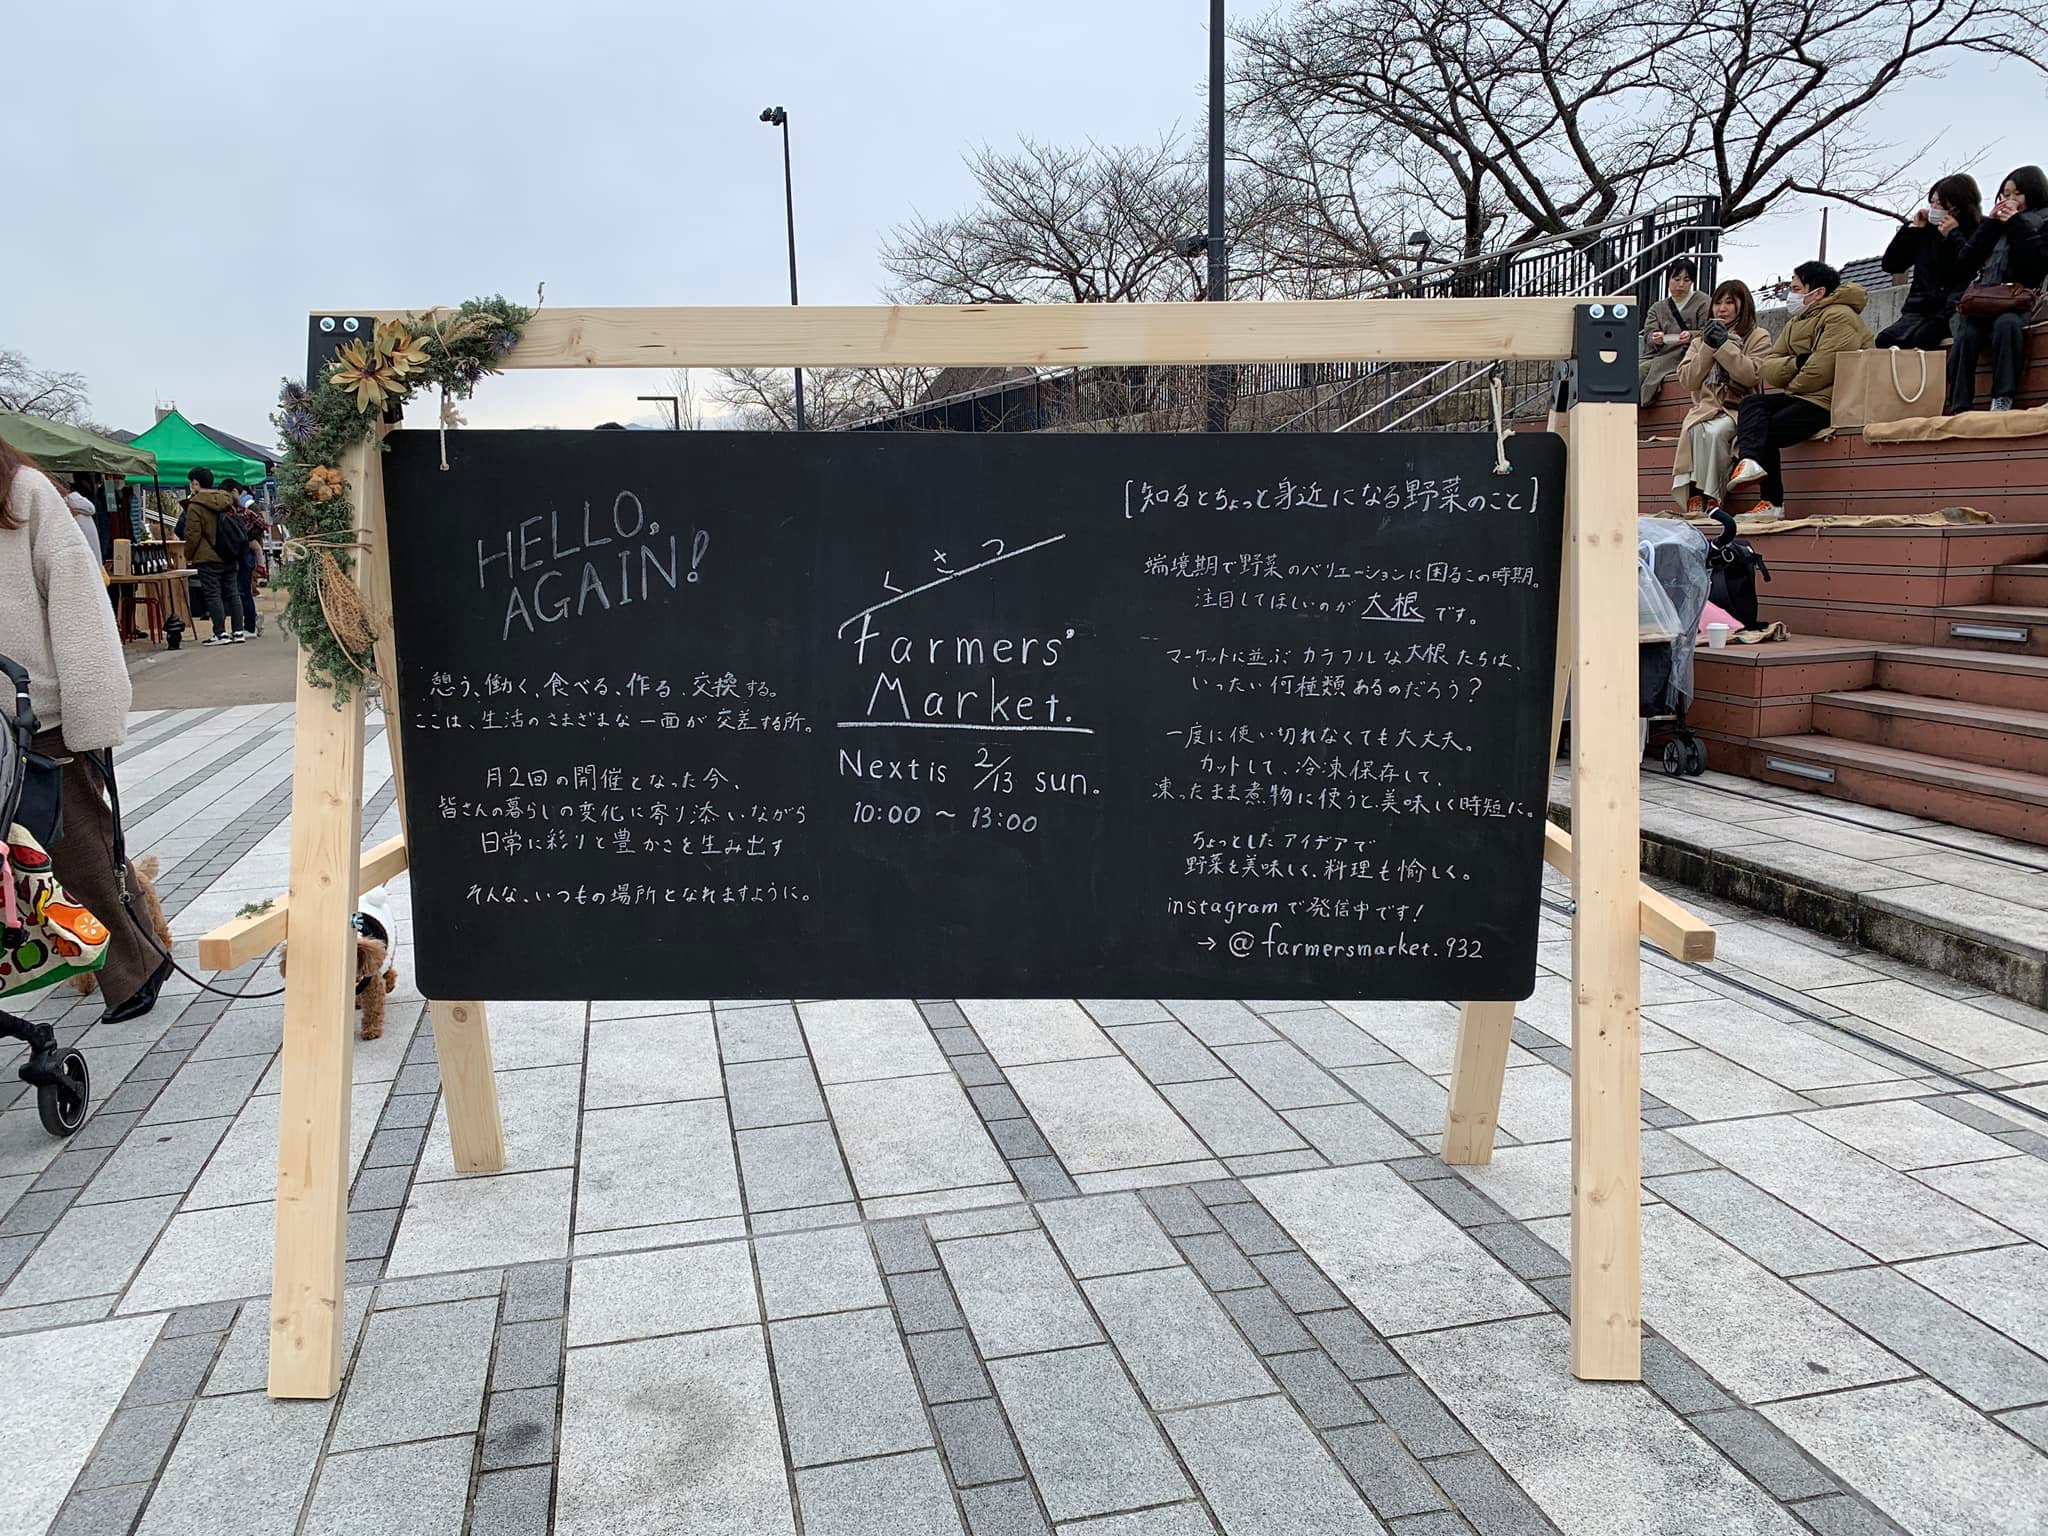 HELLO,
AGAIN!
憩う、働く、食べる、作る、交換する。
ここは、生活のさまざまな一面が交差する所。
月2回の開催となった今、
皆さんの暮らしの変化に寄り添いながら
日常に彩りと豊かさを生み出す
そんな、いつもの場所となれますように。
くさつ
Farmers'
Market.
Next is 2/13 sun.
10:00 ~ 13:00
[知るとちょっと身近になる野菜のこと]
端境期で野菜のバリエーションに困るこの時期。
注目してほしいのが 大根 です。
マーケットに並ぶ カラフルな大根たちは、
いったい何種類あるのだろう?
一度に使い切れなくても大丈夫。
カットして、冷凍保存して、
凍ったまま煮物に使うと、美味しく時短に。
ちょっとしたアイデアで
野菜を美味しく、料理も愉しく。
instagramで発信中です!
→ @farmersmarket.932